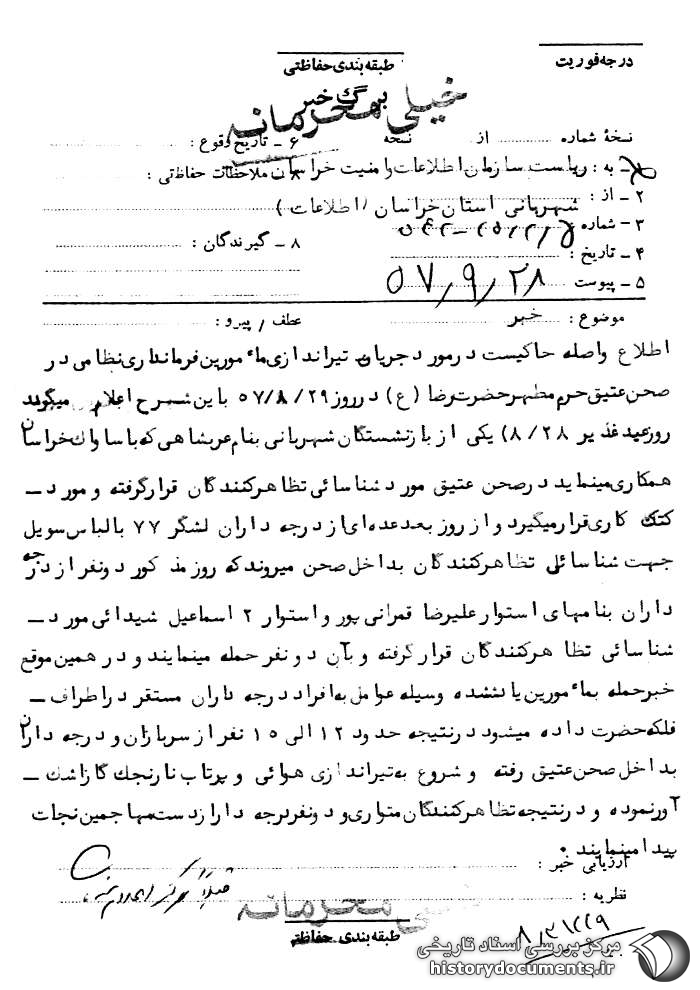 درجه فوریت
طبقه بندی حفاظتی
برگ خبر
خیلی محرمانه
نسخهٔ شماره از نسخه
۶ ـ تاریخ وقوع :
۱ـ به : ریاست سازمان اطلاعات وامنیت خراسان
ملاحظات حفاظتی :
۲ ـ از : شهربانی استان خراسان (اطلاعات )
۳ ـ شماره
۸ ـ گیرندگان :
۴ ـ تاریخ :
۵ ـ پیوست
۵۷٫۹٫۲۸
موضوع : خبر
عطف / پیرو :
اطلاع واصله حاکیست درمورد جریان تیراندازی مأمورین فرمانداری نظامی در
صحن عتیق حرم مطهر حضرت رضا (ع) درروز ۵۷/۸/۲۹ باین شرح اعلام میگردد
روز عید غذیر ۸/۲۸) یکی از بازنشستگان شهربانی بنام عربشاهی که باساواک خراسان
همکاری مینماید درصحن عتیق مورد شناسائی تظاهرکنندگان قرارگرفته و مورد ـ
کتک کاری قرارمیگیرد و از روز بعد عده ای از درجه داران لشگر ۷۷ بالباس سویل
جهت شناسائی تظاهرکنندگان بداخل صحن میروند که روز مذکور دونفر از درجه
داران بنامهای استوار علیرضا قمرانی پور و استوار ۲ اسماعیل شیدائی مورد ـ
شناسائی تظاهرکنندگان قرارگرفته و بآن دونفر حمله مینمایند و در همین موقع
خبرحمله بمأمورین یادشده وسیله عوامل به افراد درجه داران مستقر دراطراف ـ
فلکه حضرت داده میشود درنتیجه حدود ۱۲ الی ۱۵ نفر از سربازان و درجه داران
بداخل صحن عتیق رفته و شروع به تیراندازی هوائی و پرتاب نارنجک گازاشک ـ
آورنموده و درنتیجه تظاهرکنندگان متواری و دونفردرجه دارازدست مهاجمین نجات
پیدا مینمایند ۰
ارزیابی خبر :
نظریه :
خیلی محرمانه
طبقه بندی حفاظتی
مرکز بررسی اسناد تاریخی
historydocuments.ir